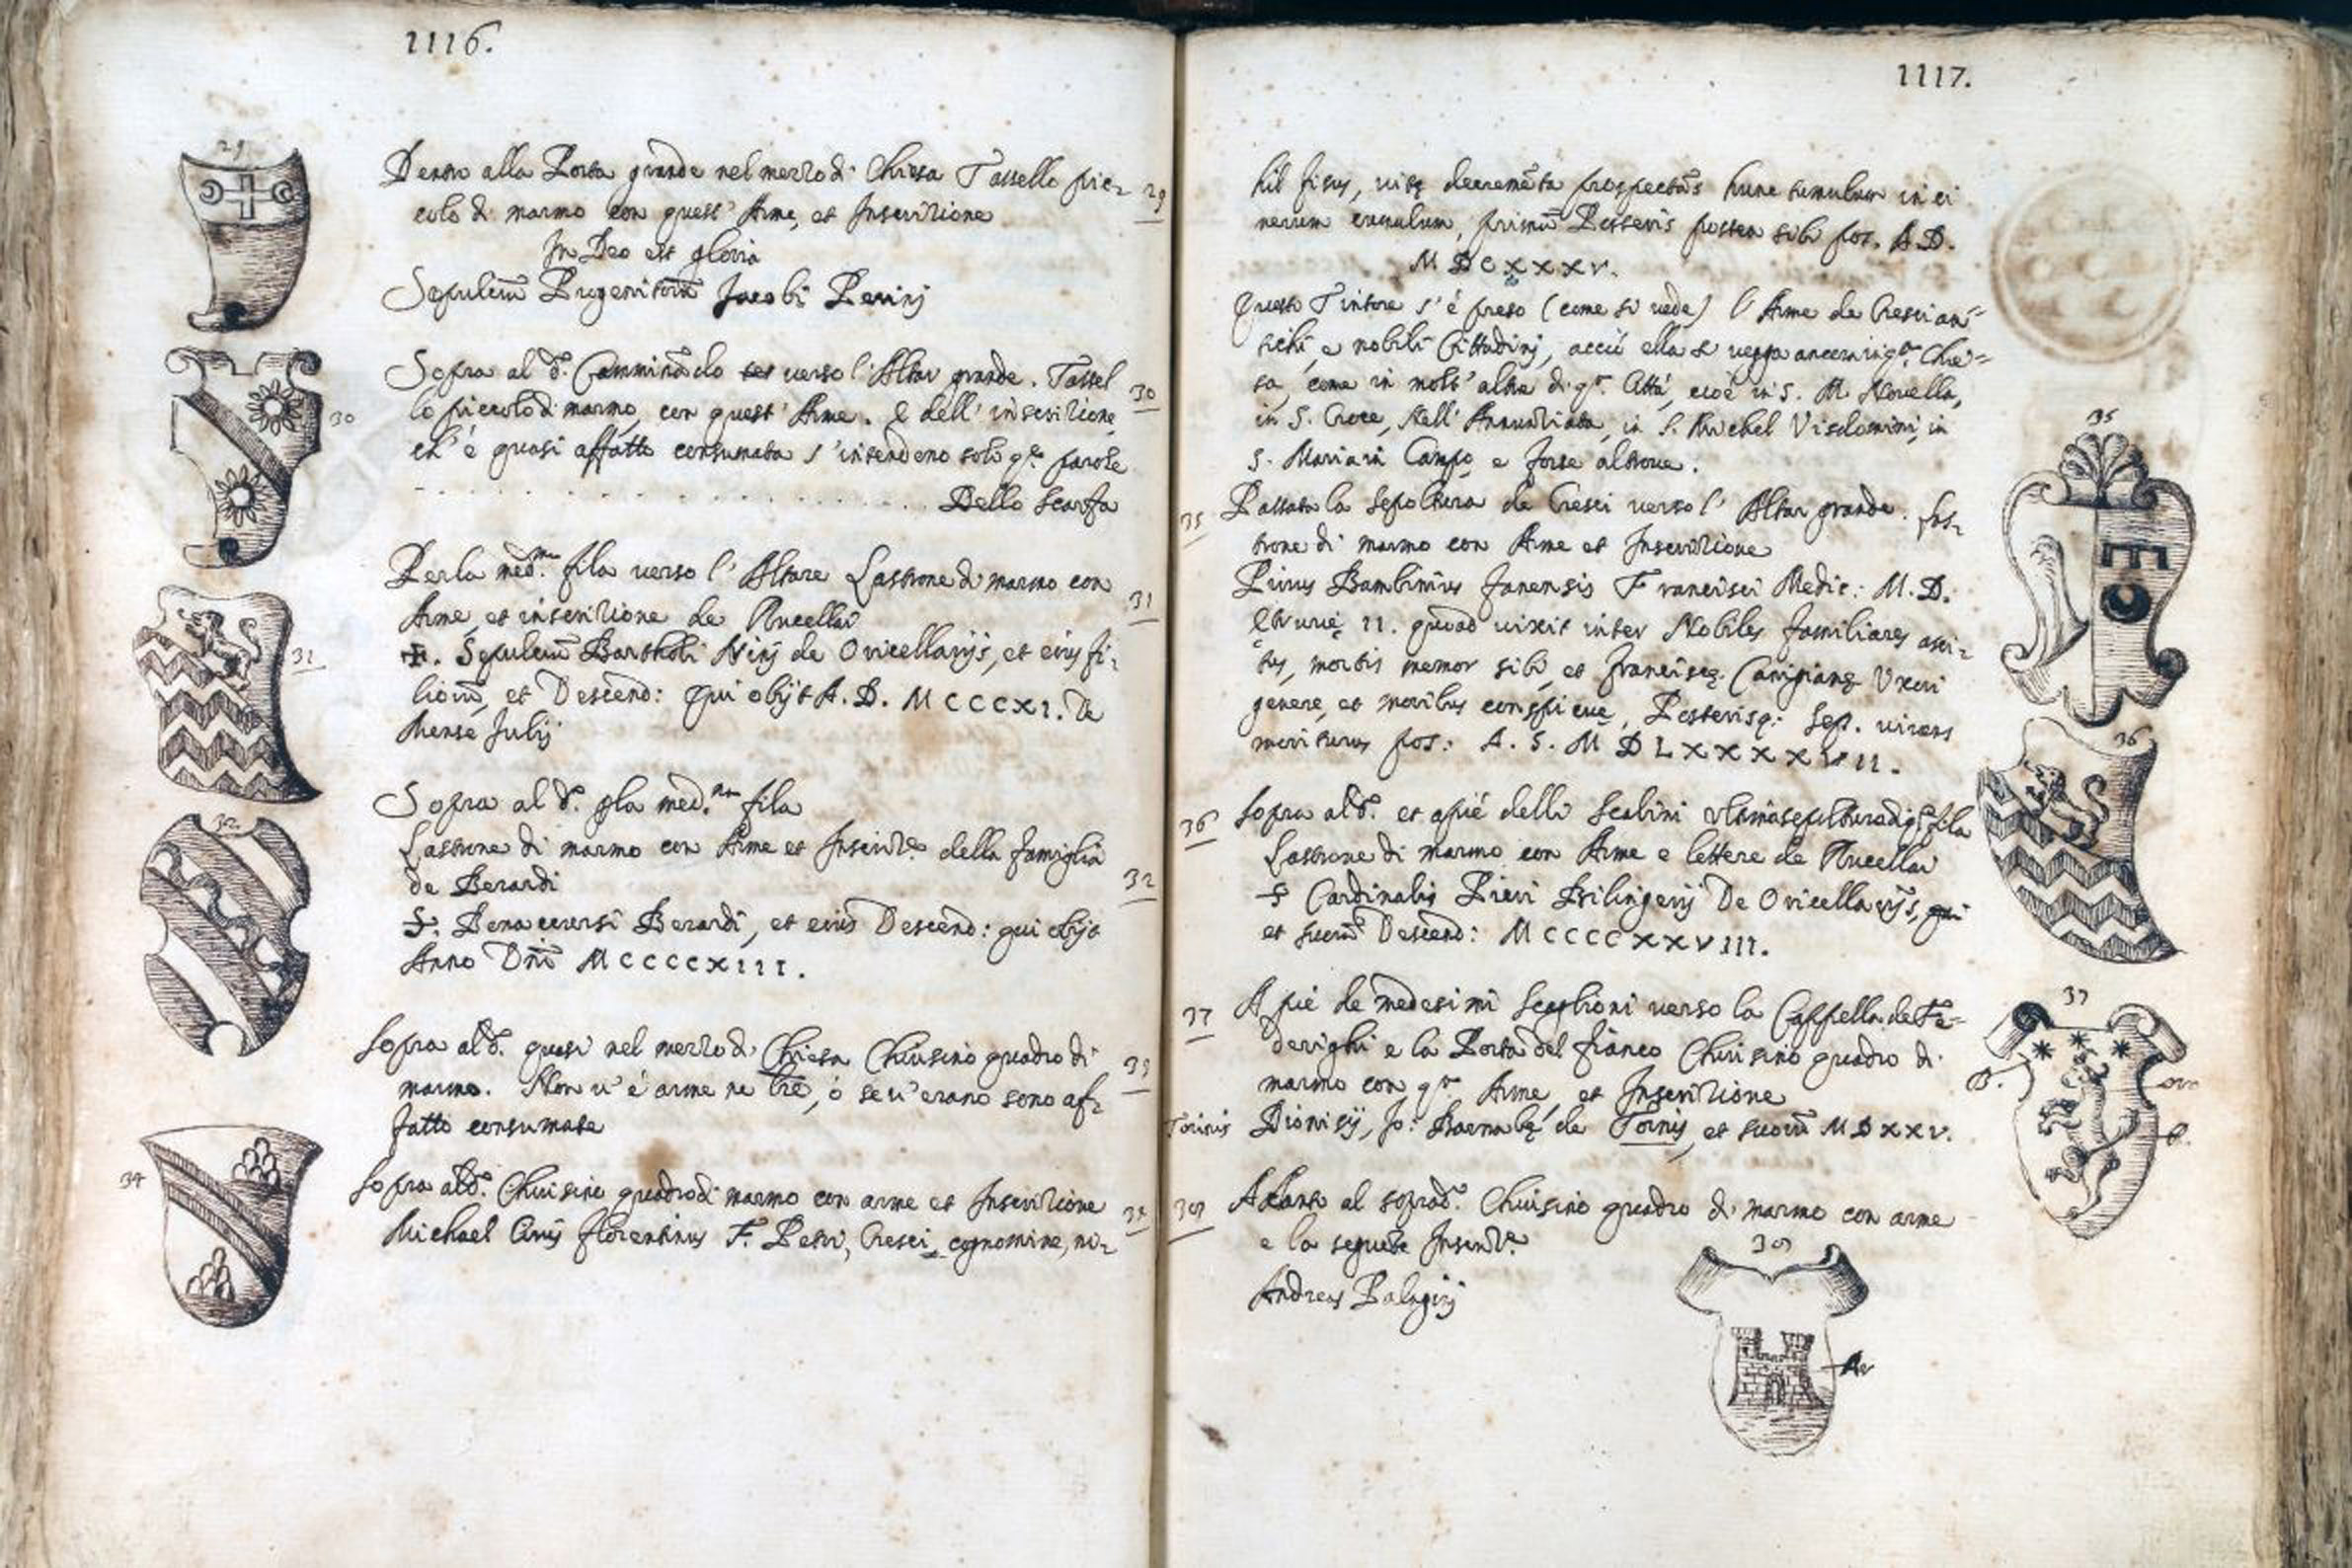 1116.
29
Dentro alla Porta grande nel mezzo di Chiesa Tassello pic= 29
colo di marmo con quest' Arme, et Inscrizione
In Deo est gloria
Sepulcrū Progenitorū Jacobi Perinj
Sopra al d.º Camminādo verso l'Altar grande. Tassel 30
lo piccolo di marmo, con quest' Arme. E dell' inscrizione,
ch' è quasi affatto consumata s'intendono solo q.te parole
. . . . . . . . . . Dello Scarfa
30
Per la med.ma fila verso l'Altare Lastrone di marmo con
Arme, et inscrizione de Rucellai 31
✠. Sepulcrū Bartholi de Oricellarijs, et eius fi=
liorū, et Descend: qui obijt A. D. MCCCXI. De
Mense Julij
31
Sopra al d.º p la med.ma fila
Lastrone di marmo con Arme et Inscriz.e della famiglia
de Berardi 32
S. Bernardi, et eius Descend: qui obijt
Anno Dñi MCCCCXIII.
32
Sopra al d.º quasi nel mezzo di Chiesa Chiusino quadro di
marmo. Non v'è arme ne lre, ò se v'erano sono af= 33
fatto consumate
34
Sopra al d.º Chiusino quadro di marmo con arme et Inscrizione
Michael Civis Florentinus F. Petri, Cresci cognomine, ni= 34
1117.
hil fisus, vitę decremēta prospectās hunc tumulum in ci
nerum cumulum, primū Posteris posten sibi pos. A. D.
MDCXXXV.
Questo Tintore s'è preso (come si vede) l'Arme de Cresci an=
tichi, e nobili Cittadinj, acciò ella si vegga ancora in q.ta Chie=
sa, come in molt'altre di q.ta Città, cioè in S. M. Novella,
in S. Croce, Nell'Annunziata, in S. Michel Visdomini, in
S. Maria in Campo e forse altrove.
35 Passata la sepoltura de Cresci verso l'Altar grande. Las=
trone di marmo con Arme et Inscrizione
Pirrus Bambinius Francisci Medic: M. D.
Etrurię II. quoad vixit inter Nobiles familiares asci=
tus, mortis memor sibi, et Franciscę Uxori
genere, et moribus conspicuę, Posterisq: Sep. vivens
moriturus pos: A. S. MDLXXXXVII.
35
36 Sopra al d.º et apiè delli Scalini ultima sepoltura di q.ta fila
Lastrone di marmo con Arme e lettere de Rucellai
S Cardinalis Pieri Bilingerij De Oricellarijs, qui
et suorū Descend: MCCCCXXVIII.
36
37 A piè de medesimi Scaglioni verso la Cappella de Fe=
derighi e la Porta del fianco Chiusino quadro di
marmo con q.ta Arme, et Inscrizione
Torinis Dionisij, Jo: Barnabę de Tornis, et suorū MDXXV.
37
B.
oro
R.
38 A canto al soprad.º Chiusino quadro di marmo con arme
e la seguēte Inscriz.e
Andreas
38
Ar